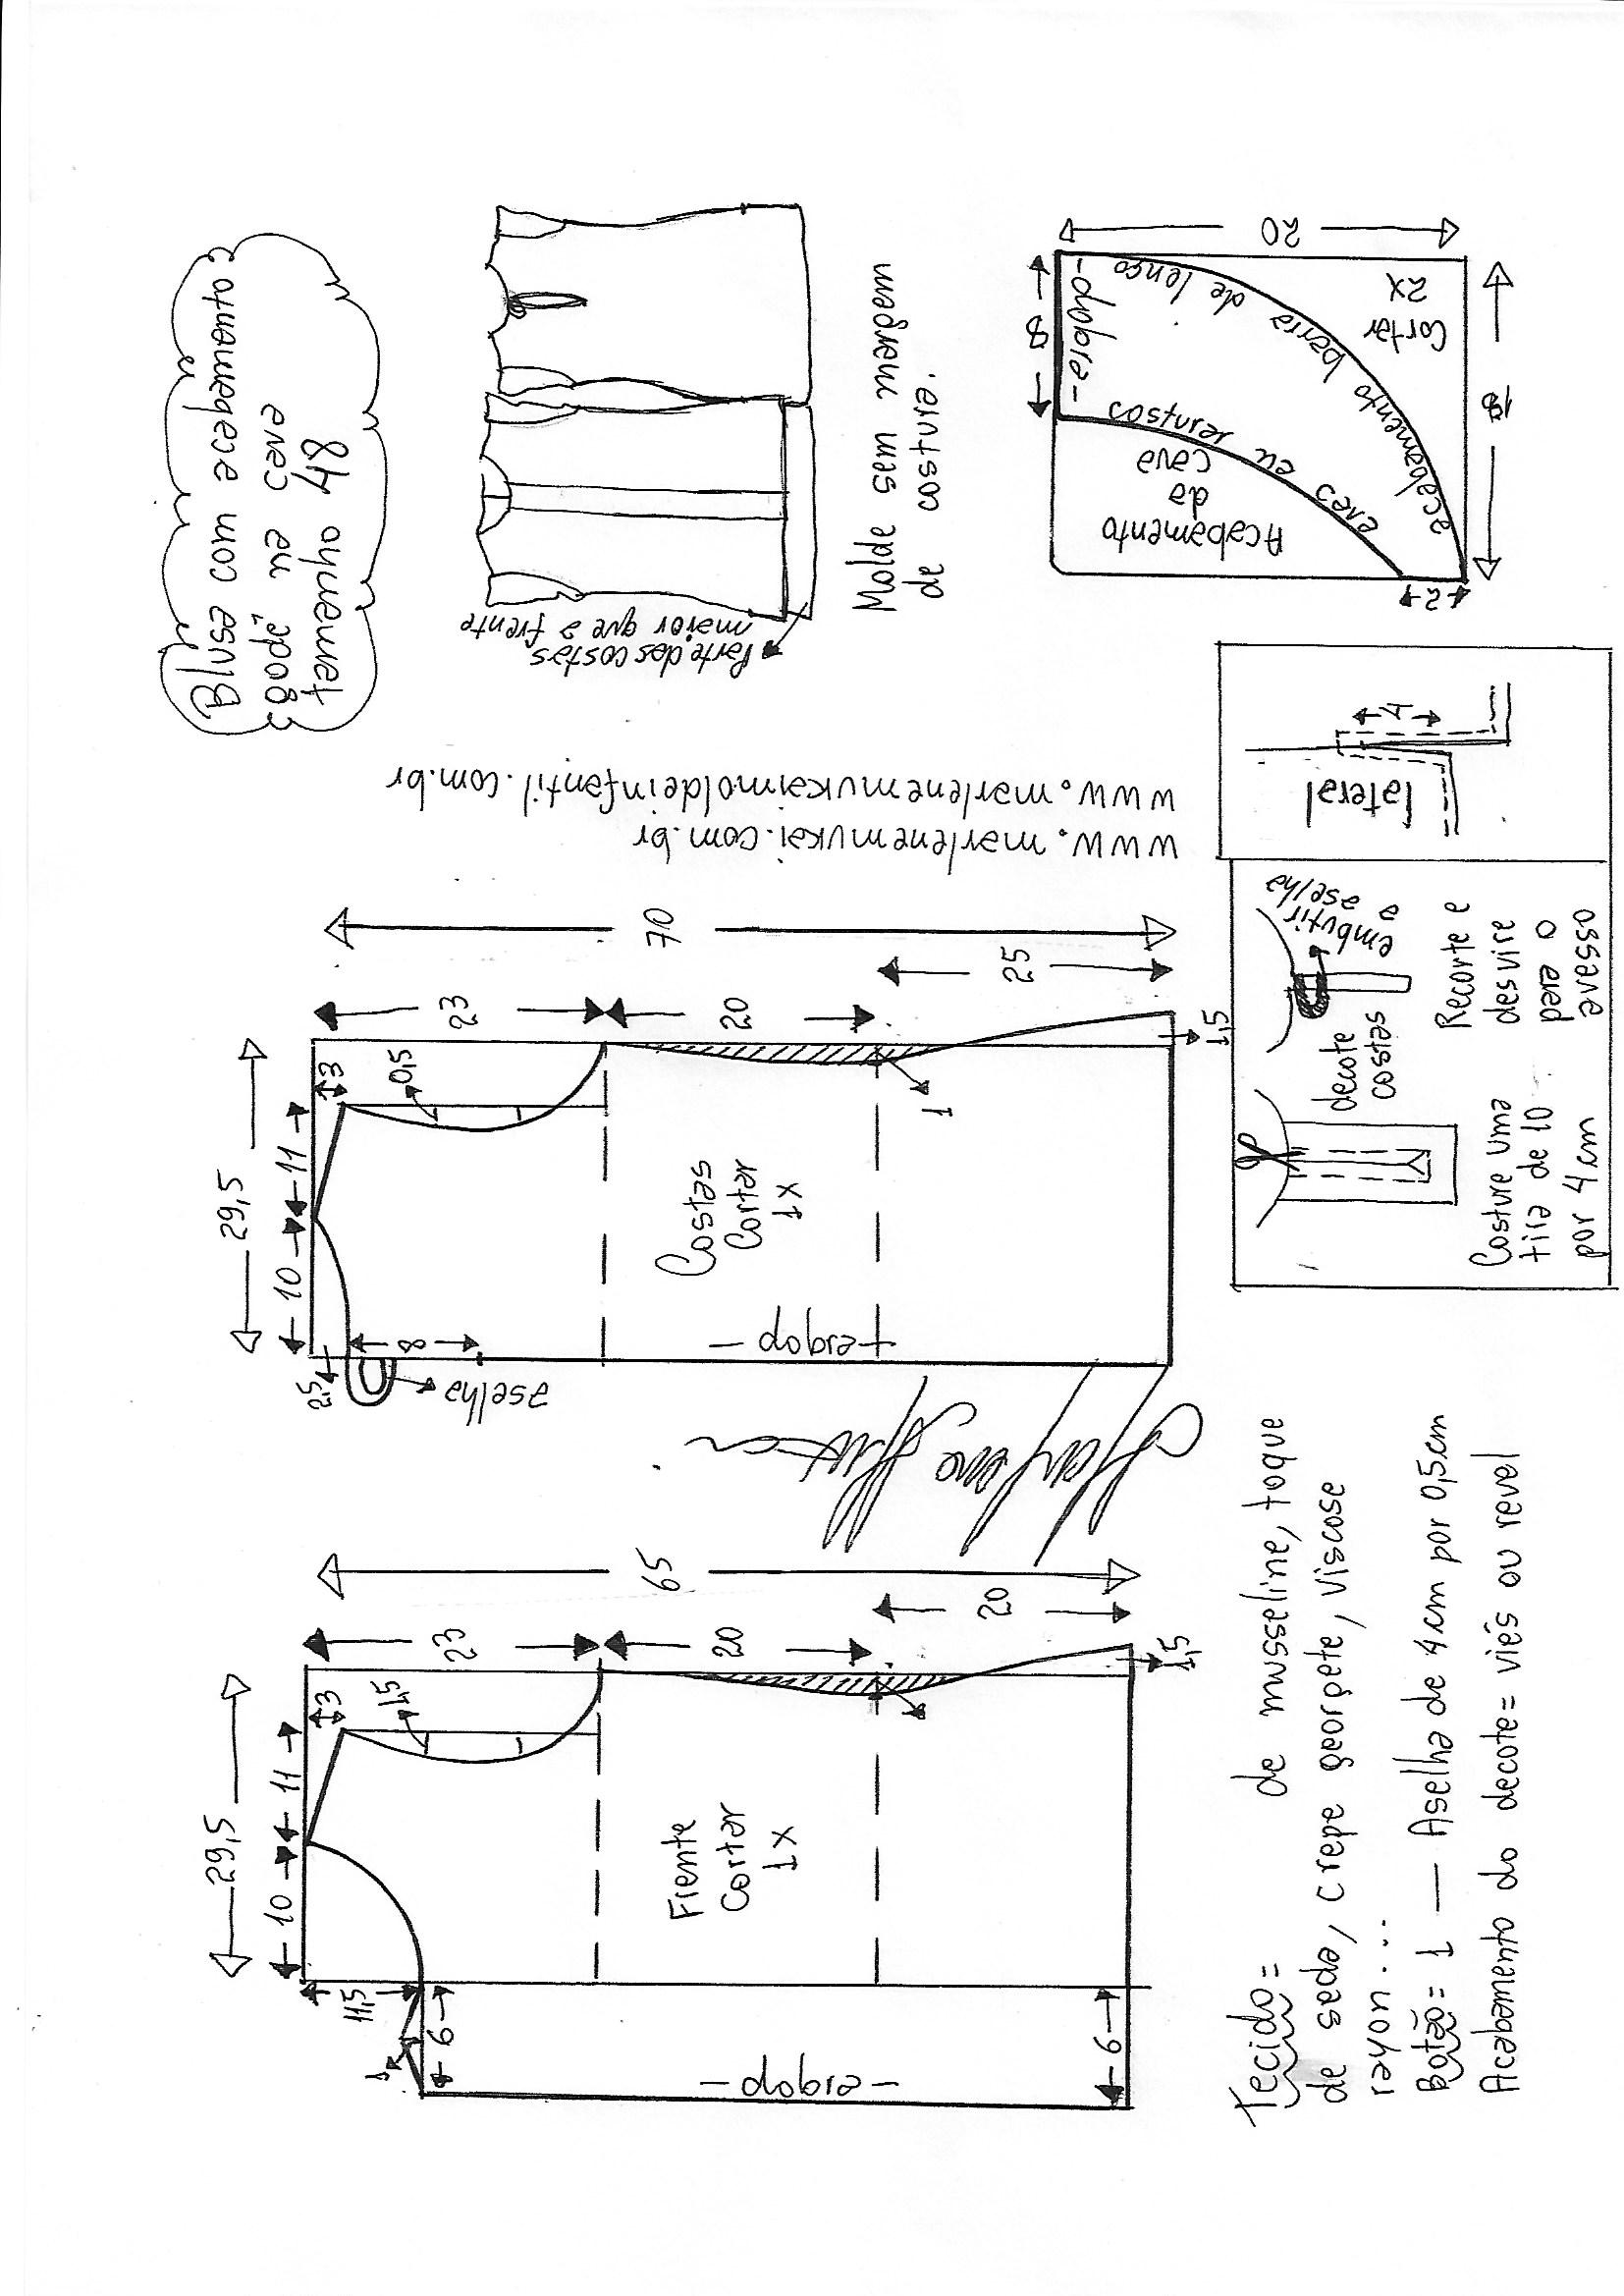 Blusa com acabamento
godê na cava
tamanho 48
Parte das costas
maior que a frente
Molde sem margem
de costura.
20
8
- dobra -
acabamento barra de lenço
Cortar
2X
costurar na cava
Acabamento
da
cava
18
2
www.marlenemukaimoldeinfantil.com.br
www.marlenemukai.com.br
29,5
10
11
3
11,5
1,5
23
20
65
20
1,5
Frente
Cortar
1X
1
6
6
- dobra -
29,5
10
11
3
2,5
0,5
8
aselha
23
20
70
25
1
1,5
Costas
Cortar
1X
- dobra -
Tecido= de musseline, toque
de seda, crepe georgete, viscose
rayon...
Botão= 1 — Aselha de 4cm por 0,5cm
Acabamento do decote= viés ou revel
decote
costas
embutir
a
aselha
Costure uma
tira de 10
por 4cm
Recorte e
desvire
para o
avesso
lateral
4